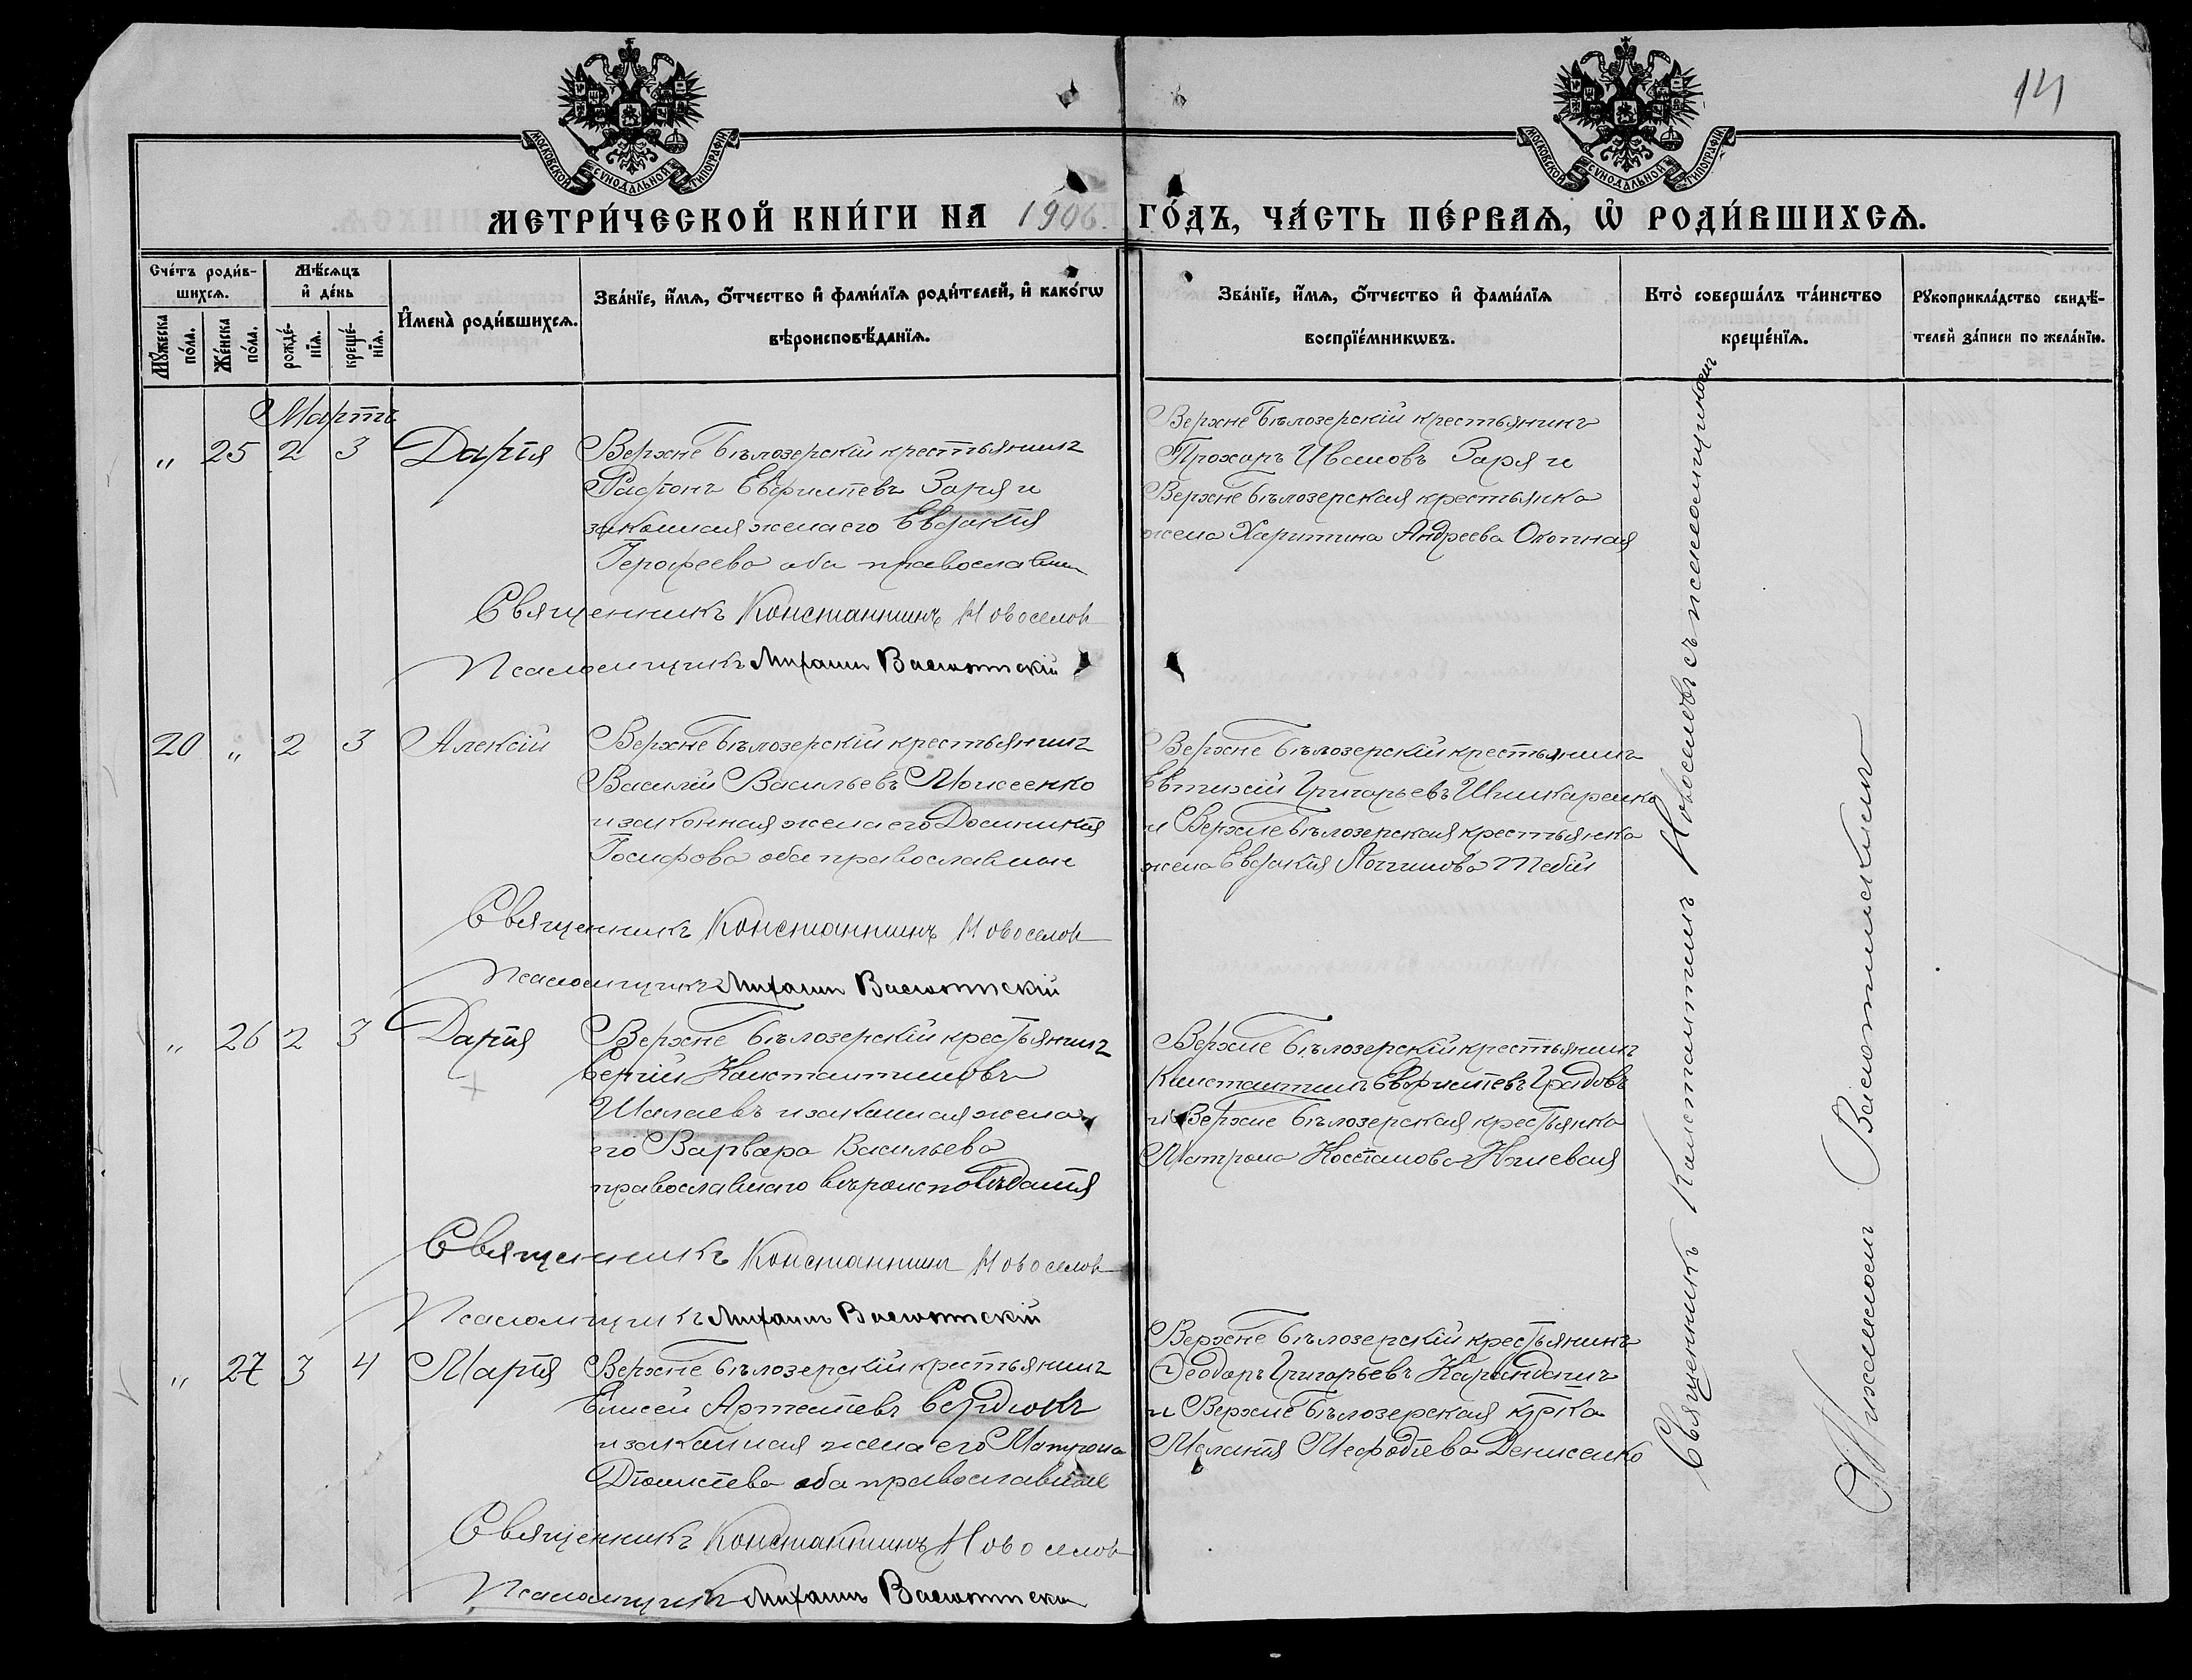 14
МОСКОВСКОЙ СУНОДАЛЬНОЙ ТИПОГРАФІИ
МОСКОВСКОЙ СУНОДАЛЬНОЙ ТИПОГРАФІИ
МЕТРИ́ЧЕСКОЙ КНИ́ГИ НА 1906 ГО́ДЪ, ЧА́СТЬ ПЕ́РВАѦ, Ѡ҆ РОДИ́ВШИХСѦ.
Сче́тъ роди́в-
шихсѧ.
Мꙋ́жеска по́ла.
Же́нска по́ла.
Мѣ́сѧцъ
и҆ де́нь
рожде́-
нїѧ.
креще́-
нїѧ.
И҆мена̀ роди́вшихсѧ.
Зва́нїе, и҆́мѧ, ѻ҆́тчество и҆ фами́лїѧ роди́телей, и҆ како́гѡ
вѣроисповѣ́данїѧ.
Зва́нїе, и҆́мѧ, ѻ҆́тчество и҆ фами́лїѧ
воспрїе́мникѡвъ.
Кто̀ соверша́лъ та́инство
креще́нїѧ.
Рꙋкоприкла́дство свидѣ́-
телей за́писи по жела́нїю.
Мартъ
„ 25 2 3 Дарія
Верхне Бѣлозерскій крестьянинъ
Заря и
законная жена его Евдокія
Іерофеева оба православны
Верхне Бѣлозерскій крестьянинъ
Прохоръ Ивановъ Заря и
Верхне Бѣлозерская крестьянка
жена Харитина Андреева
Священникъ Константинъ Новоселовъ
Псаломщикъ Михаилъ
20 „ 2 3 Алексій
Верхне Бѣлозерскій крестьянинъ
Василій Васильевъ Моисеенко
и законная жена его Домникія
Іосифова оба православные
Верхне Бѣлозерскій крестьянинъ
Евтихій Григорьевъ Шинкаренко
и Верхне Бѣлозерская крестьянка
жена Евдокія Логгинова
Священникъ Константинъ Новоселовъ
Псаломщикъ Михаилъ
„ 26 2 3 Дарія
Верхне Бѣлозерскій крестьянинъ
Сергій Константиновъ
Шалаевъ и законная жена
его Варвара Васильева
православнаго вѣроисповѣданія
Верхне Бѣлозерскій крестьянинъ
Константинъ
и Верхне Бѣлозерская крестьянка
Матрона
Священникъ Константинъ Новоселовъ
Псаломщикъ Михаилъ
„ 27 3 4 Марія
Верхне Бѣлозерскій крестьянинъ
Елисей Артемьевъ Сердюкъ
и законная жена его Матрона
Діонисіева оба православные
Верхне Бѣлозерскій крестьянинъ
Феодоръ Григорьевъ
и Верхне Бѣлозерская кр̅ка
Меланія Мефодіева Денисенко
Священникъ Константинъ Новоселовъ
Псаломщикъ Михаилъ
Священникъ Константинъ Новоселовъ съ псаломщикомъ
Михаиломъ